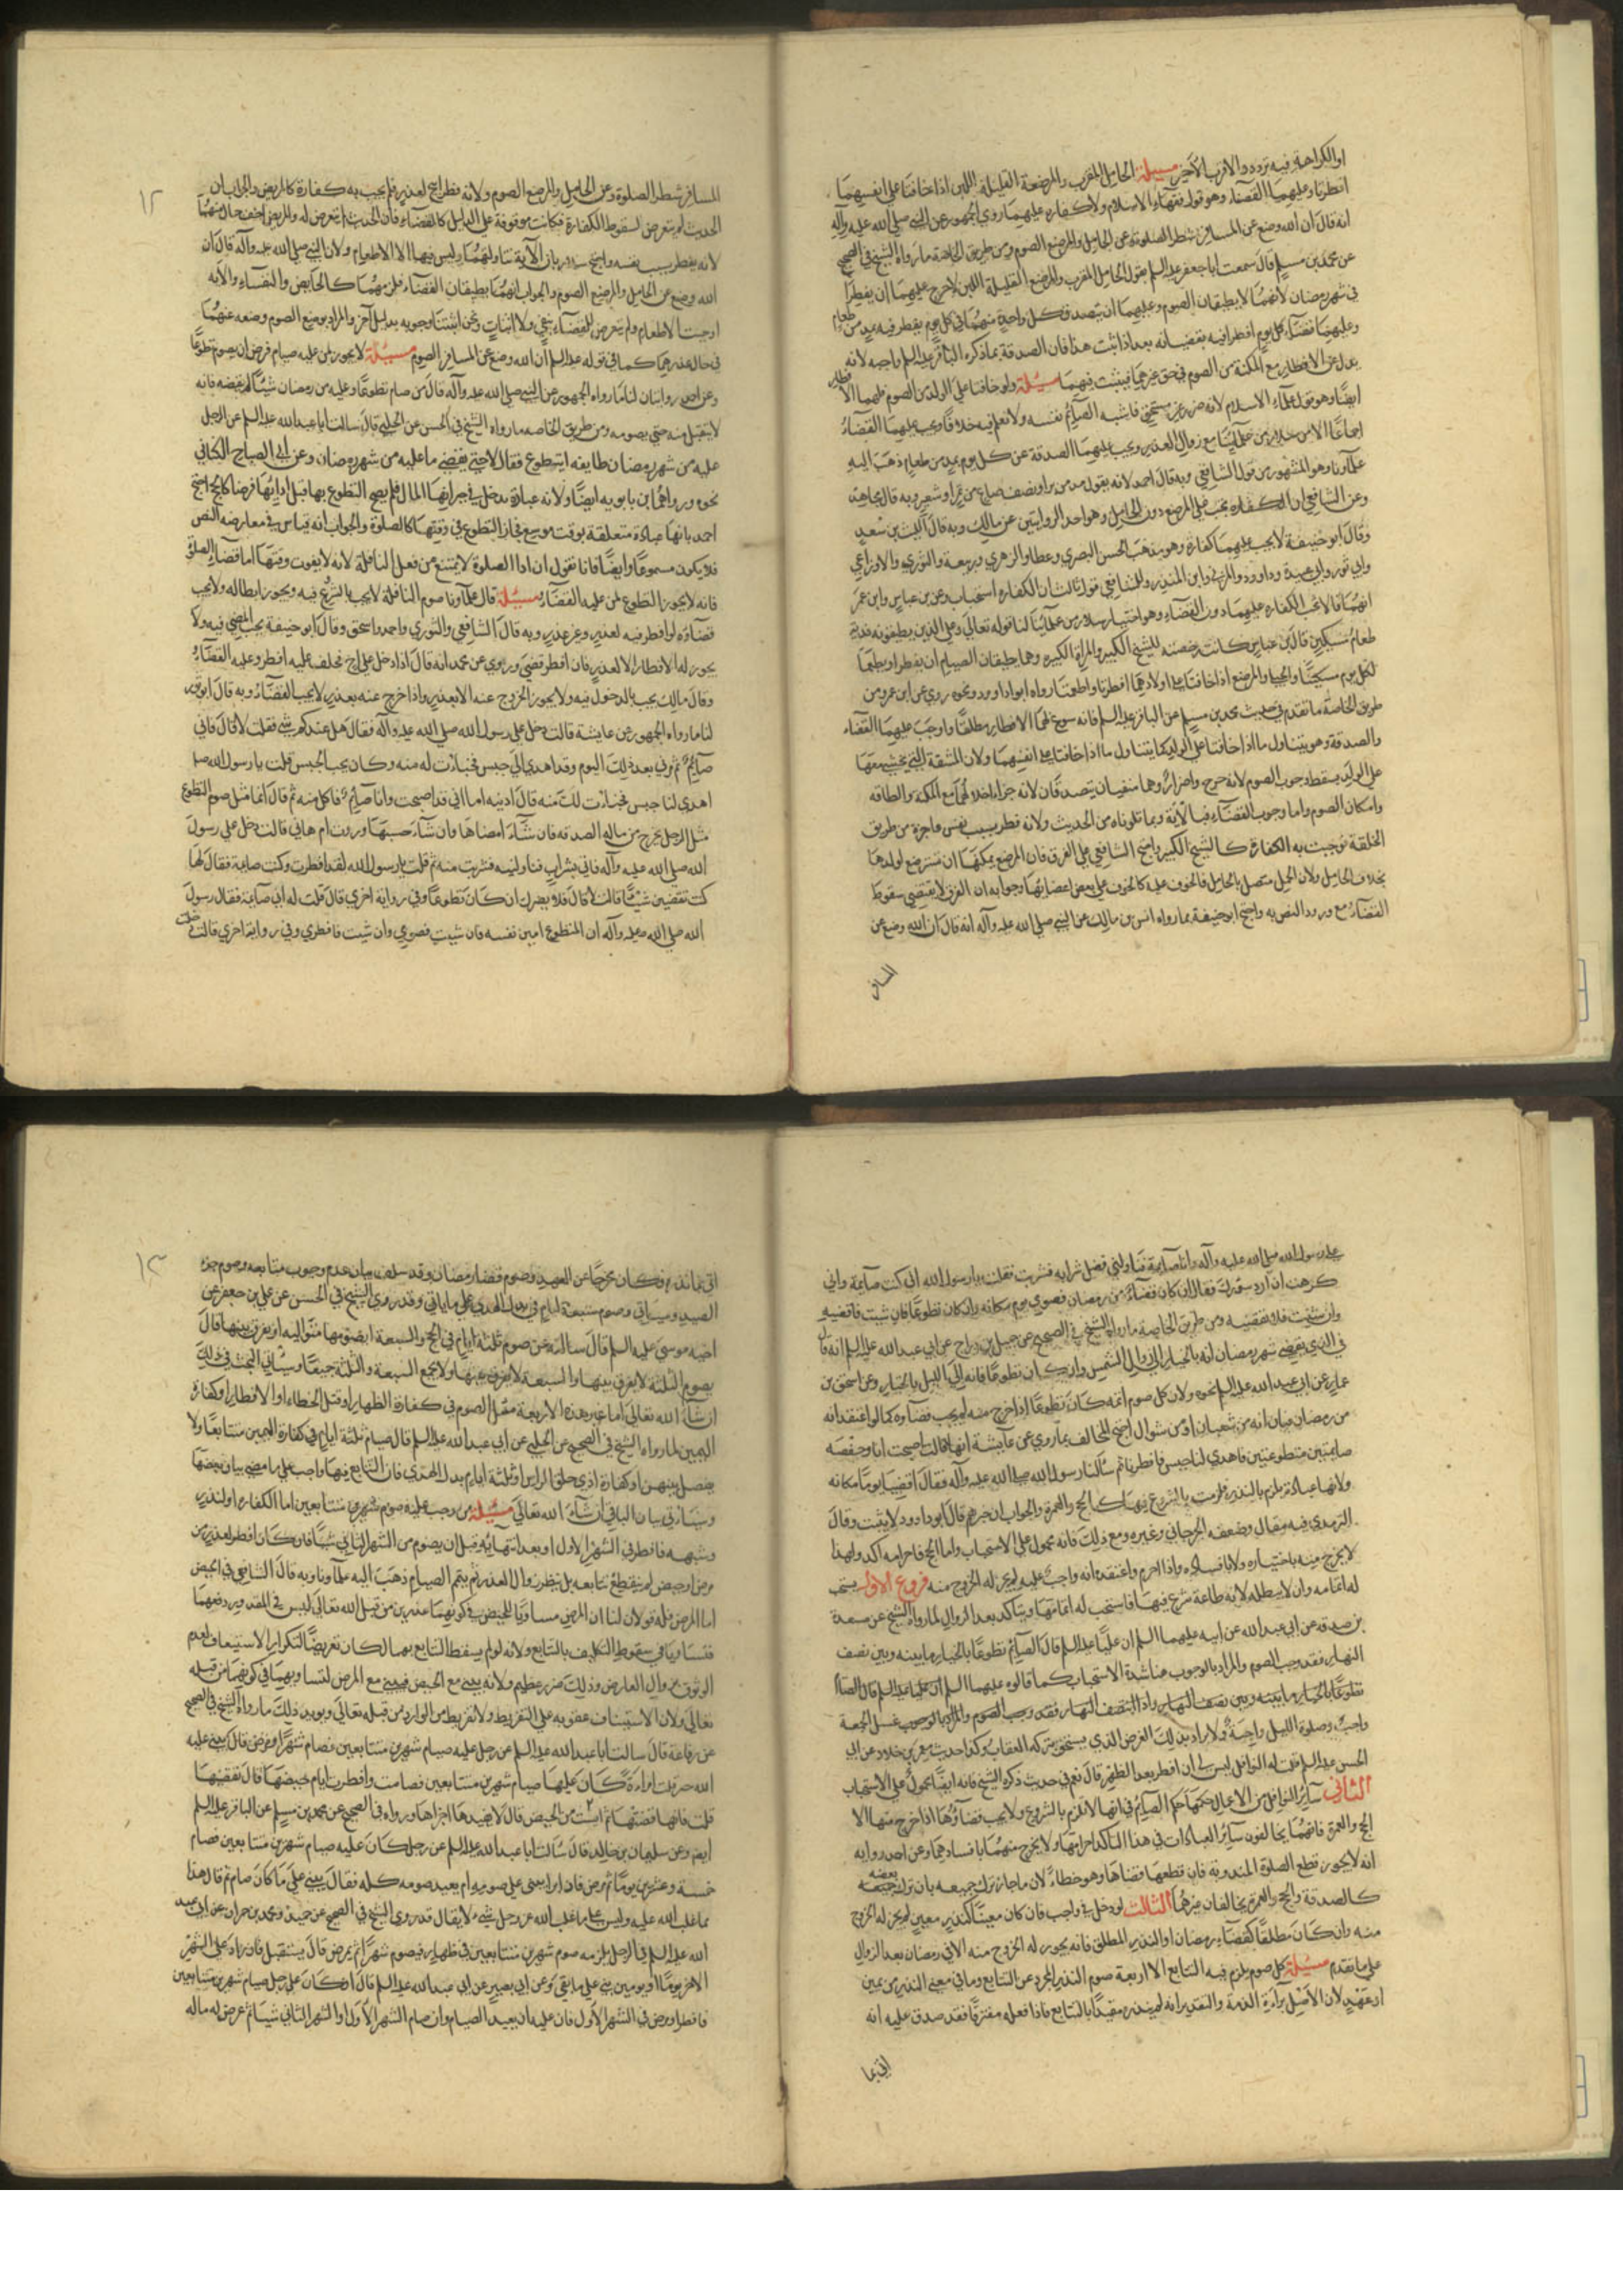 او الكراهة فيه تردد والاقرب الاخير مسئلة الحامل المقرب والمرضعة القليلة اللبن اذا خافتا على انفسهما
افطرتا وعليهما القضاء وهو قول فقهاء الاسلام ولا كفارة عليهما روى الجمهور عن النبي صلى الله عليه وآله
انه قال ان الله وضع عن المسافر شطر الصلوة وعن الحامل والمرضع الصوم ومن طريق الخاصة ما رواه الشيخ في الصحيح
عن محمد بن مسلم قال سمعت ابا جعفر عليه السلم يقول الحامل المقرب والمرضع القليلة اللبن لا حرج عليهما ان يفطرا
في شهر رمضان لانهما لا يطيقان الصوم وعليهما ان يتصدق كل واحدة منهما في كل يوم يفطر فيه بمد من طعام
وعليهما قضاء كل يوم افطرا فيه يقضيانه بعد اذا ثبت هذا فان الصدقة بما ذكره الباقر عليه السلم واجبة لانه
بدل عن الافطار مع المكنة من الصوم في حق غيرهما فيثبت فيهما مسئلة ولو خافتا على الولد من الصوم فلهما الافطار
ايضا وهو قول علماء الاسلام لانه ضرر غير مستحق فاشبه الصائم نفسه ولا نعلم فيه خلافا ويجب عليهما القضاء
اجماعا الا من سلار من علمائنا مع زوال العذر ويجب عليهما الصدقة عن كل يوم بمد من طعام ذهب اليه
علماؤنا وهو المشهور من قول الشافعي وبه قال احمد لانه يقول مد من بر او نصف صاع من تمر او شعير وبه قال مجاهد
وعن الشافعي ان الكفارة تجب على المرضع دون الحامل وهو احد الروايتين عن مالك وبه قال الليث بن سعد
وقال ابو حنيفة لا يجب عليهما كفارة وهو مذهب الحسن البصري وعطا والزهري وربيعة والثوري والاوزاعي
وابي ثور وابي عبيدة وداود والمزني وابن المنذر وللشافعي قول ثالث ان الكفارة استحباب وعن ابن عباس وابن عمر
انهما قالا تجب الكفارة عليهما دون القضاء وهو اختيار سلار من علمائنا لنا قوله تعالى وعلى الذين يطيقونه فدية
طعام مسكين قال ابن عباس كانت رخصة للشيخ الكبير والمراة الكبيرة وهما يطيقان الصيام ان يفطرا ويطعما
لكل يوم مسكينا والحبلى والمرضع اذا خافتا على اولادهما افطرتا واطعمتا رواه ابو داود ونحوه روي عن ابن عمر ومن
طريق الخاصة ما تقدم في حديث محمد بن مسلم عن الباقر عليه السلم فانه سوغ لهما الافطار مطلقا واوجب عليهما القضاء
والصدقة وهو يتناول ما اذا خافتا على الولد كما يتناول ما اذا خافتا على انفسهما ولان المشقة التي يخشى معها
على الولد يسقط وجوب الصوم لانه حرج واضرار وهما منفيان
وامكان الصوم واما وجوب القضاء فبالآية وبما تلوناه من الحديث ولانه فطر بسبب نفس عاجزة من طريق
الخلقة فوجبت به الكفارة كالشيخ الكبير واحتج الشافعي على الفرق فان المرضع يمكنها ان تسترضع لولدها
بخلاف الحامل ولان الحمل متصل بالحامل فالخوف عليه كالخوف على بعض اعضائها وجوابه ان الفرق لا يقتضي سقوط
القضاء مع ورود النص به واحتج ابو حنيفة بما رواه انس بن مالك عن النبي صلى الله عليه وآله انه قال ان الله وضع عن
المسافر
١٢
المسافر شطر الصلوة وعن الحامل والمرضع الصوم ولانه فطر ابيح لعذر فلم يجب به كفارة كالمريض والجواب ان
الحديث لم يتعرض لسقوط الكفارة فكانت موقوفة على الدليل كالقضاء فان الحديث لم يتعرض له والمريض اخف حالا منهما
لانه يفطر بسبب نفسه واحتج سلار بان الآية تناولتهما وليس فيها الا الاطعام ولان النبي صلى الله عليه وآله قال ان
الله وضع عن الحامل والمرضع الصوم والجواب انهما يطيقان القضاء فلزمهما كالحائض والنفساء والآية
اوجبت الاطعام ولم تتعرض للقضاء بنفي ولا اثبات ونحن اثبتنا وجوبه بدليل آخر والمراد بوضع الصوم وضعه عنهما
في حال عذرهما كما في قوله عليه السلم ان الله وضع عن المسافر الصوم مسئلة لا يجوز لمن عليه صيام فرض ان يصوم تطوعا
وعن احمد روايتان لنا ما رواه الجمهور عن النبي صلى الله عليه وآله قال من صام تطوعا وعليه من رمضان شيئا لم يقضه فانه
لا يتقبل منه حتى يصومه ومن طريق الخاصة ما رواه الشيخ في الحسن عن الحلبي قال سالت ابا عبد الله عليه السلم عن الرجل
عليه من شهر رمضان طايفة ايتطوع فقال لا حتى يقضي ما عليه من شهر رمضان وعن ابي الصباح الكناني
نحوه ورواهما ابن بابويه ايضا ولانه عبادة يدخل في جبرانها المال فلم يصح التطوع بها قبل ادائها فرضا كالحج احتج
احمد بانها عبادة متعلقة بوقت موسع فجاز التطوع في وقتها كالصلوة والجواب انه قياس في معارضة النص
فلا يكون مسموعا وايضا فانا نقول ان اداء الصلوة لا يمنع من فعل النافلة لانه لا يفوت وقتها اما قضاء الصلوة
فانه لا يجوز التطوع لمن عليه القضاء مسئلة قال علماؤنا صوم النافلة لا يجب بالشروع فيه ويجوز ابطاله ولا يجب
قضاؤه لو افطر فيه لعذر وغير عذر وبه قال الشافعي والثوري واحمد واسحق وقال ابو حنيفة يجب المضي فيه ولا
يجوز له الافطار الا لعذر فان افطر قضى وروي عن محمد انه قال اذا دخل على اخ فحلف عليه افطر وعليه القضاء
وقال مالك يجب بالدخول فيه ولا يجوز الخروج عنه الا بعذر واذا خرج عنه بعذر لا يجب القضاء وبه قال ابو ثور
لنا ما رواه الجمهور عن عايشة قالت دخل علي رسول الله صلى الله عليه وآله فقال هل عندكم شيء فقلت لا قال فاني
صائم ثم مر بي بعد ذلك اليوم وقد اهدي الي حيس فخبات له منه وكان يحب الحيس قلت يا رسول الله صلى
اهدي لنا حيس فخبات لك منه قال ادنيه اما اني قد اصبحت وانا صائم فاكل منه ثم قال انما مثل صوم التطوع
مثل الرجل يخرج من ماله الصدقة فان شاء امضاها وان شاء حبسها وروت ام هاني قالت دخل علي رسول
الله صلى الله عليه وآله فاتي بشراب فناولنيه فشربت منه ثم قلت يا رسول الله لقد افطرت وكنت صايمة فقال لها
كنت تقضين شيئا قالت لا قال فلا يضرك ان كان تطوعا وفي رواية اخرى قال قلت له اني صائمة فقال رسول
الله صلى الله عليه وآله ان المتطوع امين نفسه فان شئت فصومي وان شئت فافطري وفي رواية اخرى قالت دخلت
على رسول الله صلى الله عليه وآله وانا صايمة فناولني فضل شرابه فشربت فقلت يا رسول الله اني كنت صايمة واني
كرهت ان ارد سؤرك فقال ان كان قضاء من رمضان فصومي يوم مكانه وان كان تطوعا فان شئت فاقضيه
وان شئت فلا تقضيه ومن طريق الخاصة ما رواه الشيخ في الصحيح عن جميل بن دراج عن ابي عبد الله عليه السلم انه قال
في الذي يقضي شهر رمضان انه بالخيار الى زوال الشمس وان كان تطوعا فانه الى الليل بالخيار وعن اسحق بن
عمار عن ابي عبد الله عليه السلم نحوه ولان كل صوم اتمه كان تطوعا اذا خرج منه لم يجب قضاؤه كما لو اعتقد انه
من رمضان فبان انه من شعبان او من شوال احتج المخالف بما روي عن عايشة انها قالت اصبحت انا وحفصة
صايمتين متطوعتين فاهدي لنا حيس فافطرنا ثم سالنا رسول الله صلى الله عليه وآله فقال اقضيا يوما مكانه
ولانها عبادة تلزم بالنذر فلزمت بالشروع فيها كالحج والعمرة والجواب ان خبرهم قال ابو داود لا يثبت وقال
الترمذي فيه مقال وضعفه الجرجاني وغيره ومع ذلك فانه محمول على الاستحباب واما الحج فاحرامه آكد ولهذا
لا يخرج منه باختياره ولا بافساده واذا احرم واعتقد انه واجب عليه لم يكن له الخروج منه فروع الاول يستحب
له اتمامه وان لا يبطله لانه طاعة شرع فيها فاستحب له اتمامها ويتاكد بعد الزوال لما رواه الشيخ عن مسعدة
بن صدقة عن ابي عبد الله عن ابيه عليهما السلم ان عليا عليه السلم قال الصائم تطوعا بالخيار ما بينه وبين نصف
النهار فاذا انتصف النهار فقد وجب الصوم والمراد بالوجوب هنا شدة الاستحباب كما قالوه عليهما السلم
تطوعا بالخيار ما بينه وبين نصف النهار واذا انتصف النهار فقد وجب الصوم والمراد بالوجوب غسل الجمعة
واجب وصلوة الليل واجبة ولا يراد بذلك الفرض الذي يستحق بتركه العقاب وكذا حديث معمر بن خلاد عن ابي
الحسن عليه السلم قلت له النوافل ليس لي ان افطر بعد الظهر قال نعم في حديث ذكره الشيخ فانه ايضا محمول على الاستحباب
الثاني سائر النوافل من الاعمال حكمها حكم الصائم في انها لا تلزم بالشروع ولا يجب قضاؤها اذا خرج منها الا
الحج والعمرة فانهما يخالفون سائر العبادات في هذا لتاكد احرامها ولا يخرج منهما بافسادهما وعن احمد رواية
انه لا يجوز قطع الصلوة المندوبة فان قطعها قضاها وهو خطا لان ما جاز ترك جميعه جاز ترك بعضه
كالصدقة والحج والعمرة يخالفان غيرهما الثالث لو دخل في واجب فان كان معينا كنذر معين لم يجز له الخروج
منه وان كان مطلقا كقضاء رمضان او النذر المطلق فانه يجوز له الخروج منه الا في رمضان بعد الزوال
على ما تقدم مسئلة كل صوم يلزم فيه التتابع الا اربعة صوم النذر المجرد عن التتابع وما في معنى النذر من يمين
او عهد لان الاصل براءة الذمة والتقدير انه لم ينذر مقيدا بالتتابع فاذا فعله مفترقا فقد صدق عليه انه
اتى بما
١٣
اتى بما نذره وكان مخرجا عن العهدة وصوم قضاء رمضان وقد سلف بيان عدم وجوب متابعه وصوم جزاء
الصيد وسياتي وصوم سبعة ايام في بدل الهدي على ما ياتي وقد روى الشيخ في الحسن عن علي بن جعفر عن
اخيه موسى عليه السلم قال سالته عن صوم ثلثة ايام في الحج والسبعة ايصومها متوالية او يفرق بينها قال
يصوم الثلثة لا يفرق بينها والسبعة لا يفرق بينها ولا يجمع السبعة والثلثة جميعا وسياتي البحث في ذلك
ان شاء الله تعالى اما غير هذه الاربعة مثل الصوم في كفارة الظهار او قتل الخطاء او الافطار او كفارة
اليمين لما رواه الشيخ في الصحيح عن الحلبي عن ابي عبد الله عليه السلم قال صيام ثلثة ايام في كفارة اليمين متتابعا ولا
يفصل بينهن او كفارة اذى حلق الراس او ثلثة ايام بدل الهدي فان التتابع فيها واجب على ما مضى بيان بعضها
وسياتي بيان الباقي ان شاء الله تعالى مسئلة من وجب عليه صوم شهرين متتابعين اما الكفارة او لنذر
وشبهه فافطر في الشهر الاول او بعد انتهائه وقبل ان يصوم من الشهر الثاني شيئا فان كان افطر لعذر من
مرض او حيض لم ينقطع تتابعه بل ينتظر زوال العذر ثم يتم الصيام ذهب اليه علماؤنا وبه قال الشافعي في الحيض
اما المرض فله قولان لنا ان المرض مساويا للحيض في كونهما عذرين من قبل الله تعالى ليس في المقدور دفعهما
فتساويا في سقوط التكليف بالتتابع ولانه لو لم يسقط التتابع بهما لكان تعريضا لتكرار الاستيناف لعدم
الوثوق بزوال العارض وذلك ضرر عظيم ولانه يبني مع الحيض فيبني مع المرض لتساويهما في كونهما من قبله
تعالى ولان الاستيناف عقوبة على التفريط ولا تفريط من الوارد من قبله تعالى ويؤيد ذلك ما رواه الشيخ في الصحيح
عن رفاعة قال سالت ابا عبد الله عليه السلم عن رجل عليه صيام شهرين متتابعين فصام شهرا ومرض قال يبني عليه
الله حبسه قلت امراة كان عليها صيام شهرين متتابعين فصامت وافطرت ايام حيضها قال تقضيها
قلت فانها قضتها ثم ايست من الحيض قال لا تعيدها اجزاها ورواه في الصحيح عن محمد بن مسلم عن الباقر عليه السلم
ايضا وعن سليمان بن خالد قال سالت ابا عبد الله عليه السلم عن رجل كان عليه صيام شهرين متتابعين فصام
خمسة وعشرين يوما ثم مرض فاذا برا يبني على صومه ام يعيد صومه كله فقال يبني على ما كان صام ثم قال هذا
مما غلب الله عليه وليس على ما غلب الله عز وجل شيء لا يقال قد روى الشيخ في الصحيح عن جميل ومحمد بن حمران عن ابي عبد
الله عليه السلم في الرجل يلزمه صوم شهرين متتابعين في ظهار فيصوم شهرا ثم يمرض قال يستقبل فان زاد على الشهر
الآخر يوما او يومين بنى على ما بقي وعن ابي بصير عن ابي عبد الله عليه السلم قال ان كان على رجل صيام شهرين متتابعين
فافطر او مرض في الشهر الاول فان عليه ان يعيد الصيام وان صام الشهر الاول او الشهر الثاني شيئا ثم عرض له ماله